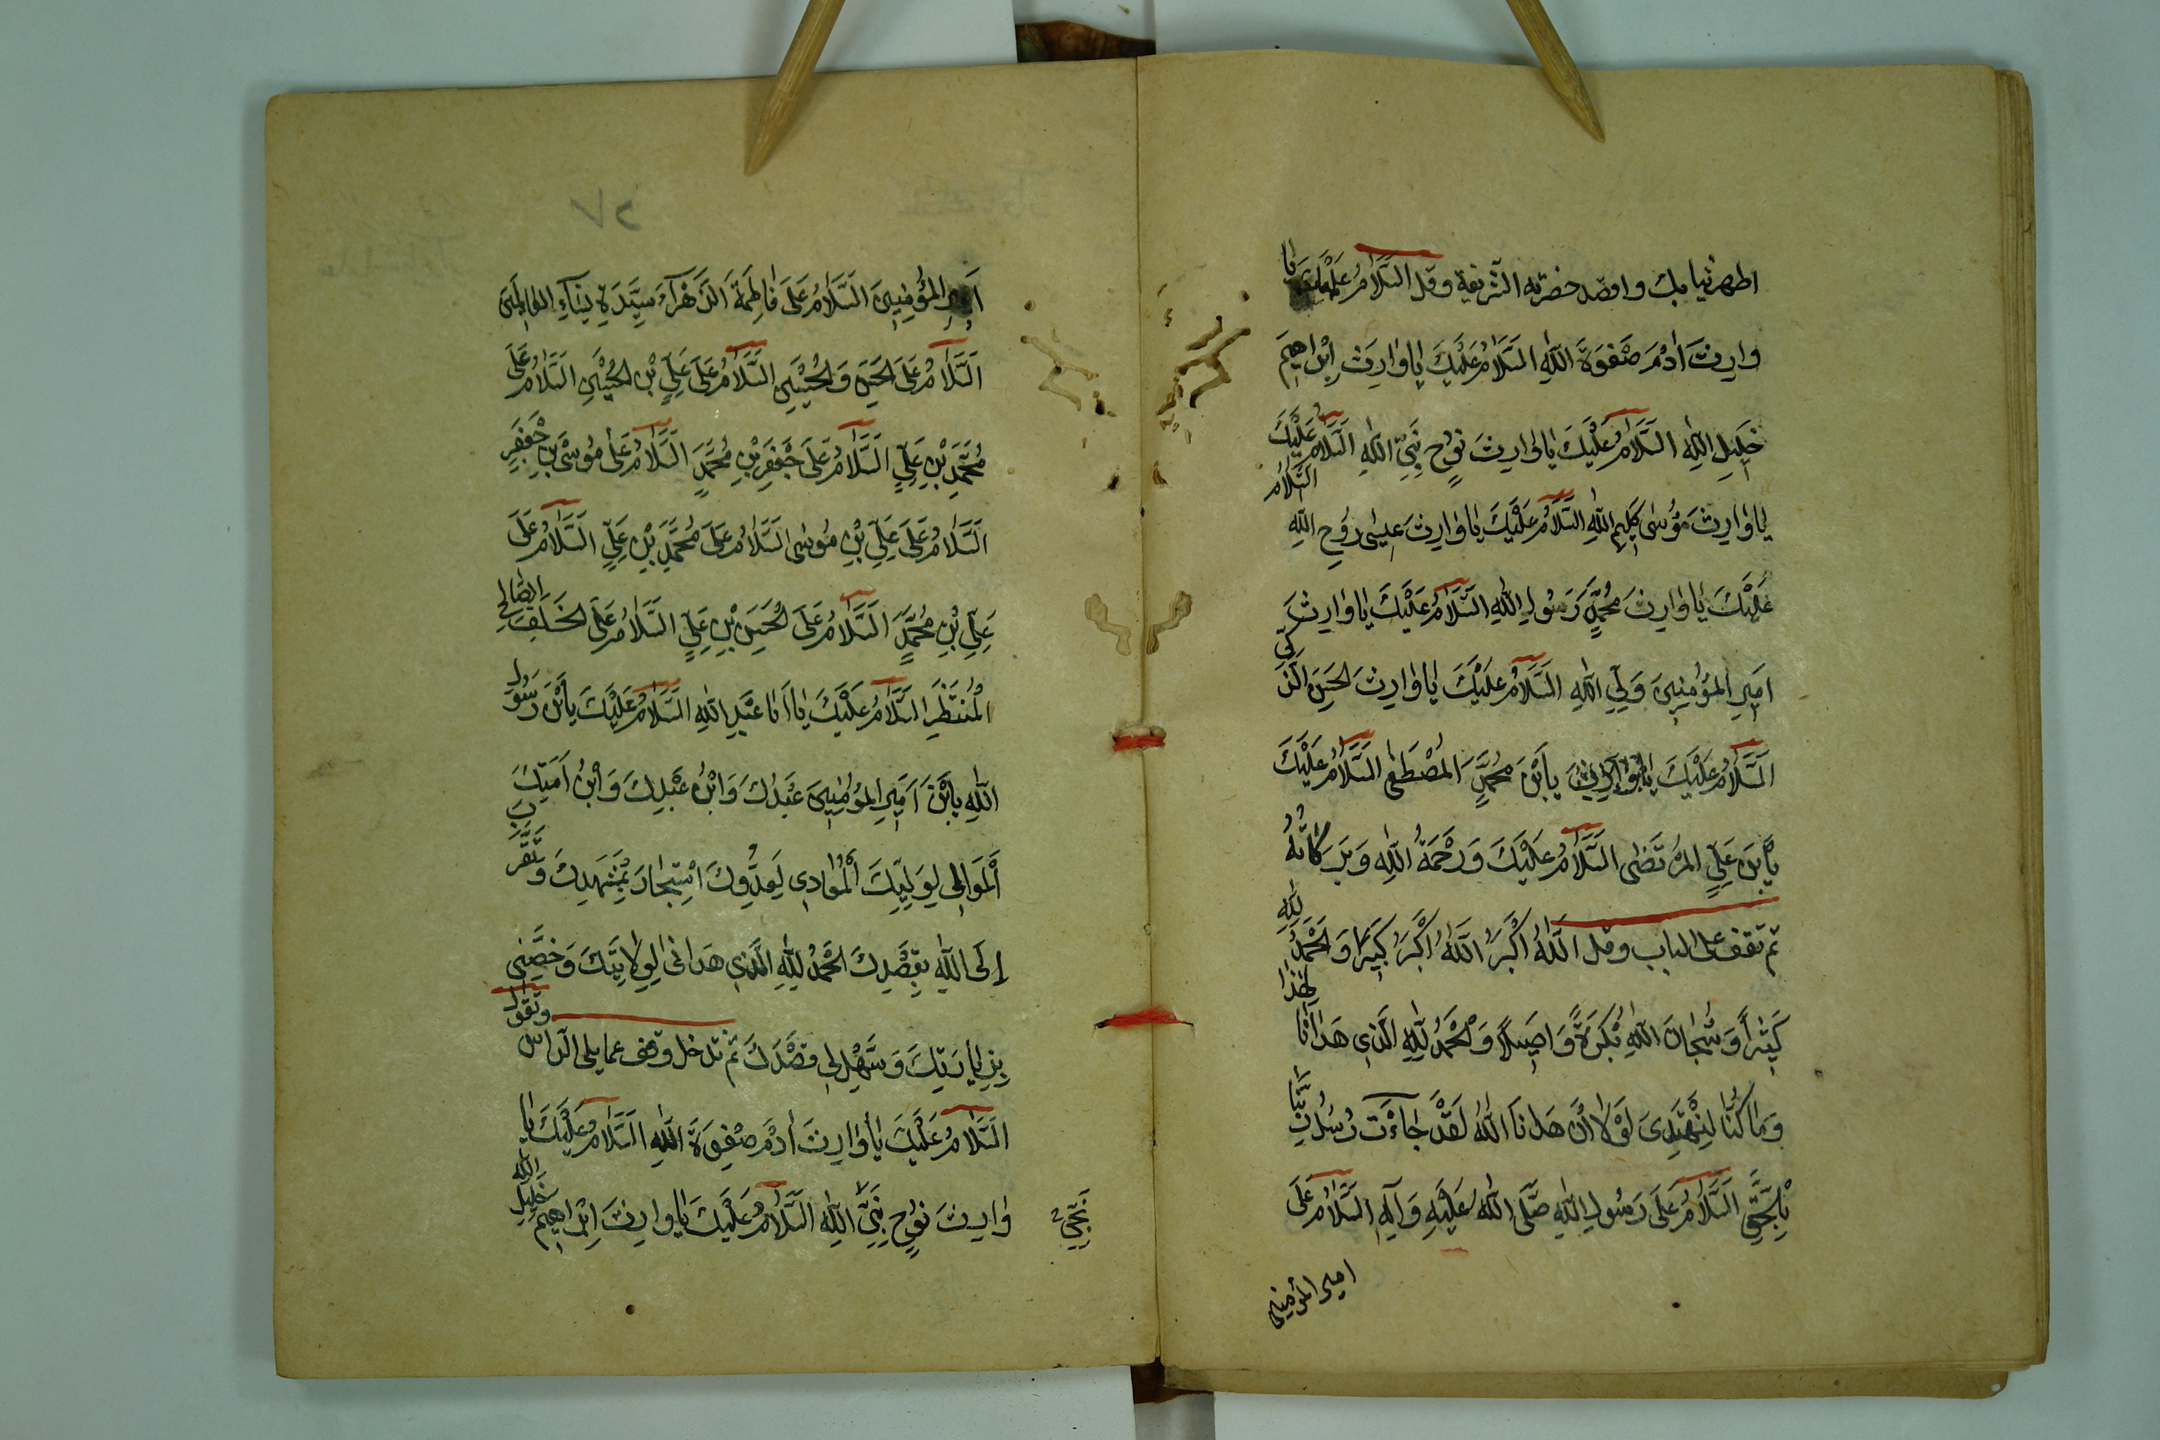 اطهر ثيابك واقصد حضرته الشريفة وقل السَّلَامُ عَلَيْكَ يا
وارِثَ آدَمَ صَفْوَةَ اللهِ السَّلَامُ عَلَيْكَ يَا وَارِثَ اِبْرَاهِيمَ
خَلِيلِ اللهِ السَّلَامُ عَلَيْكَ يَا وَارِثَ نُوحٍ نَبِيِّ اللهِ السَّلَامُ عَلَيْكَ
يَا وَارِثَ مُوسَى كَلِيمِ اللهِ السَّلَامُ عَلَيْكَ يَا وَارِثَ عِيسَى رُوحِ اللهِ السَّلَامُ
عَلَيْكَ يَا وَارِثَ مُحَمَّدٍ رَسُولِ اللهِ السَّلَامُ عَلَيْكَ يَا وَارِثَ
اَمِيرِ الْمُؤْمِنِينَ وَلِيِّ اللهِ السَّلَامُ عَلَيْكَ يَا وَارِثَ الْحَسَنِ الزَّكِيِّ
السَّلَامُ عَلَيْكَ يَابْنَ مُحَمَّدٍ الْمُصْطَفَى السَّلَامُ عَلَيْكَ
يَابْنَ عَلِيٍّ الْمُرْتَضَى السَّلَامُ عَلَيْكَ وَرَحْمَةُ اللهِ وَبَرَكَاتُهُ
ثم تقف على الباب وقل اَللهُ اَكْبَرُ اَللهُ اَكْبَرُ كَبِيرًا وَالْحَمْدُ لِلّهِ
كَثِيراً وَسُبْحَانَ اللهِ بُكْرَةً وَاَصِيلًا وَالْحَمْدُ لِلّهِ الَّذِي هَدَانَا لِهَذَا
وَمَا كُنَّا لِنَهْتَدِيَ لَوْلَا اَنْ هَدَانَا اللهُ لَقَدْ جَاءَتْ رُسُلُ رَبِّنَا
بِالْحَقِّ السَّلَامُ عَلَى رَسُولِ اللهِ صَلَّى اللهُ عَلَيْهِ وَآلِهِ السَّلَامُ عَلَى
امير المؤمنين
اَمِيرِ الْمُؤْمِنِينَ السَّلَامُ عَلَى فَاطِمَةَ الزَّهْرَآءِ سَيِّدَةِ نِسَآءِ الْعَالَمِينَ
السَّلَامُ عَلَى الْحَسَنِ وَالْحُسَيْنِ السَّلَامُ عَلَى عَلِيِّ بْنِ الْحُسَيْنِ السَّلَامُ عَلَى
مُحَمَّدِ بْنِ عَلِيٍّ السَّلَامُ عَلَى جَعْفَرِ بْنِ مُحَمَّدٍ السَّلَامُ عَلَى مُوسَى بْنِ جَعْفَرٍ
السَّلَامُ عَلَى عَلِيِّ بْنِ مُوسَى السَّلَامُ عَلَى مُحَمَّدِ بْنِ عَلِيٍّ السَّلَامُ عَلَى
عَلِيِّ بْنِ مُحَمَّدٍ السَّلَامُ عَلَى الْحَسَنِ بْنِ عَلِيٍّ السَّلَامُ عَلَى الْخَلَفِ الصَّالِحِ
الْمُنْتَظَرِ السَّلَامُ عَلَيْكَ يَا اَبَا عَبْدِ اللهِ السَّلَامُ عَلَيْكَ يَابْنَ رَسُولِ
اللهِ يَابْنَ اَمِيرِ الْمُؤْمِنِينَ عَبْدُكَ وَابْنُ عَبْدِكَ وَابْنُ اَمَتِكَ
الْمُوَالِي لِوَلِيِّكَ الْمُعَادِي لِعَدُوِّكَ اسْتَجَارَ بِمَشْهَدِكَ وَتَقَرَّبَ
اِلَى اللهِ بِقَصْدِكَ الْحَمْدُ لِلّهِ الَّذِي هَدَانِي لِوِلَايَتِكَ وَخَصَّنِي
بِزِيَارَتِكَ وَسَهَّلَ لِي قَصْدَكَ ثم تدخل وقف مما يلي الراس وتقول
السَّلَامُ عَلَيْكَ يَا وَارِثَ آدَمَ صَفْوَةِ اللهِ السَّلَامُ عَلَيْكَ يَا
وَارِثَ نُوحٍ نَبِيِّ اللهِ السَّلَامُ عَلَيْكَ يَا وَارِثَ اِبْرَاهِيمَ خَلِيلِ اللهِ